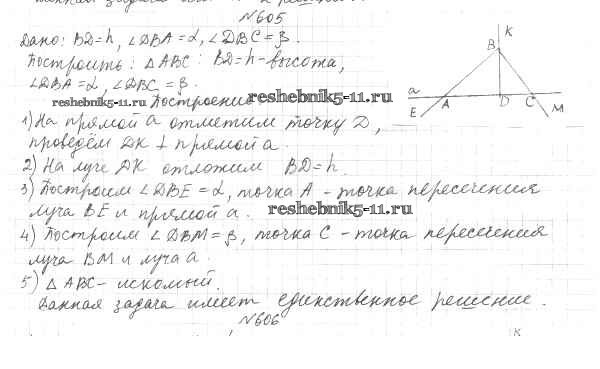 №605
Дано: BD=h, ∠DBA=α, ∠DBC=β.
Построить: △ABC: BD=h-высота,
∠DBA=α, ∠DBC=β.
reshebnik5-11.ru Построение reshebnik5-11.ru
1) На прямой a отметим точку D,
проведём DK ⊥ прямой a.
2) На луче DK отложим BD=h.
3) Построим ∠DBE=α, точка A - точка пересечения
луча BE и прямой a.
reshebnik5-11.ru
4) Построим ∠DBM=β, точка C - точка пересечения
луча BM и луча a.
5) △ABC- искомый.
Данная задача имеет единственное решение.
№606
K
B
a
A
D
C
E
M
K